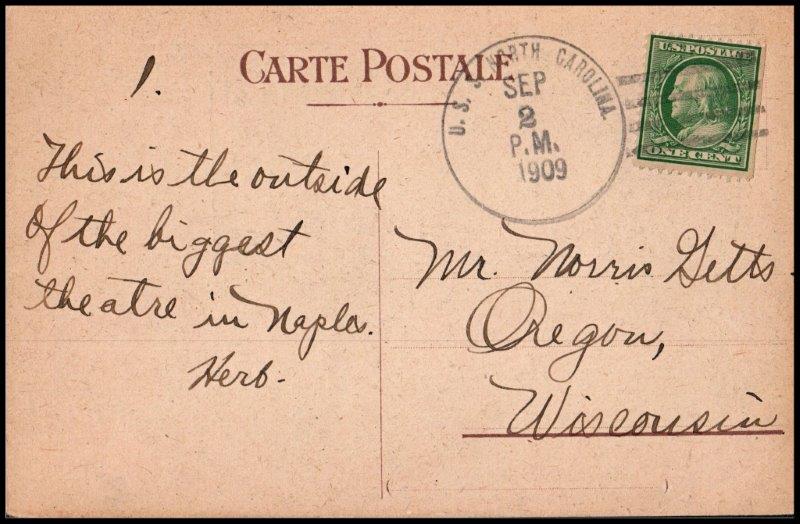 1.
CARTE POSTALE
U.S.S. NORTH CAROLINA.
SEP
2
P.M.
1909
U.S. POSTAGE
ONE CENT
This is the outside
of the biggest
theatre in Naples.
Herb.
Mr. Norris Getts.
Oregon,
Wisconsin